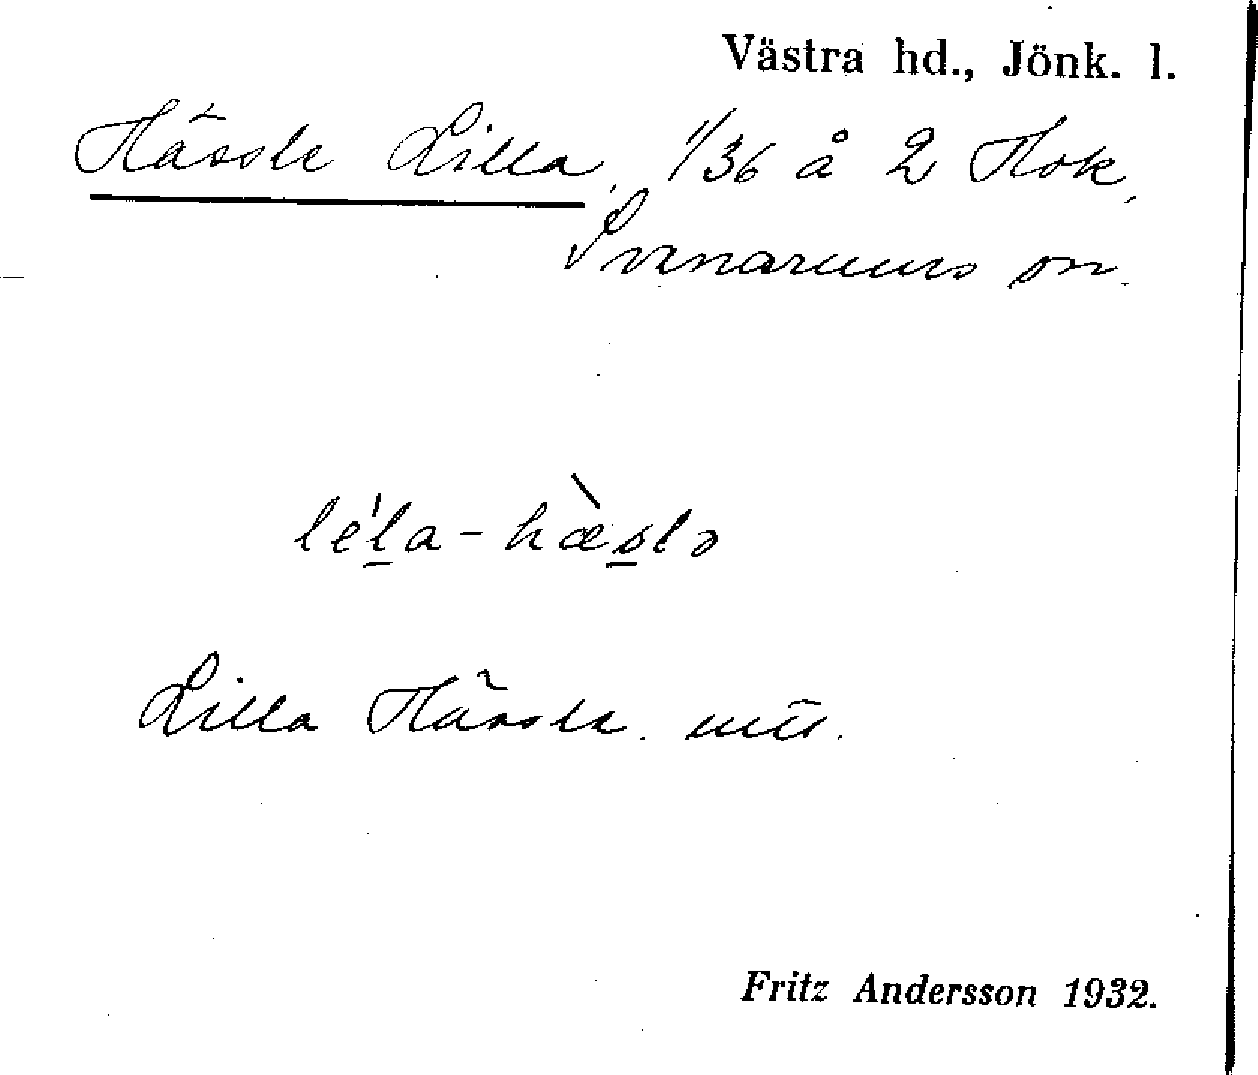 Västra hd., Jönk. l.
Hässle Lilla, 1/36 å 2 Hok,
Svenarums sn.
léla-hæ̀slə
Lilla Hässle. utt.
Fritz Andersson 1932.